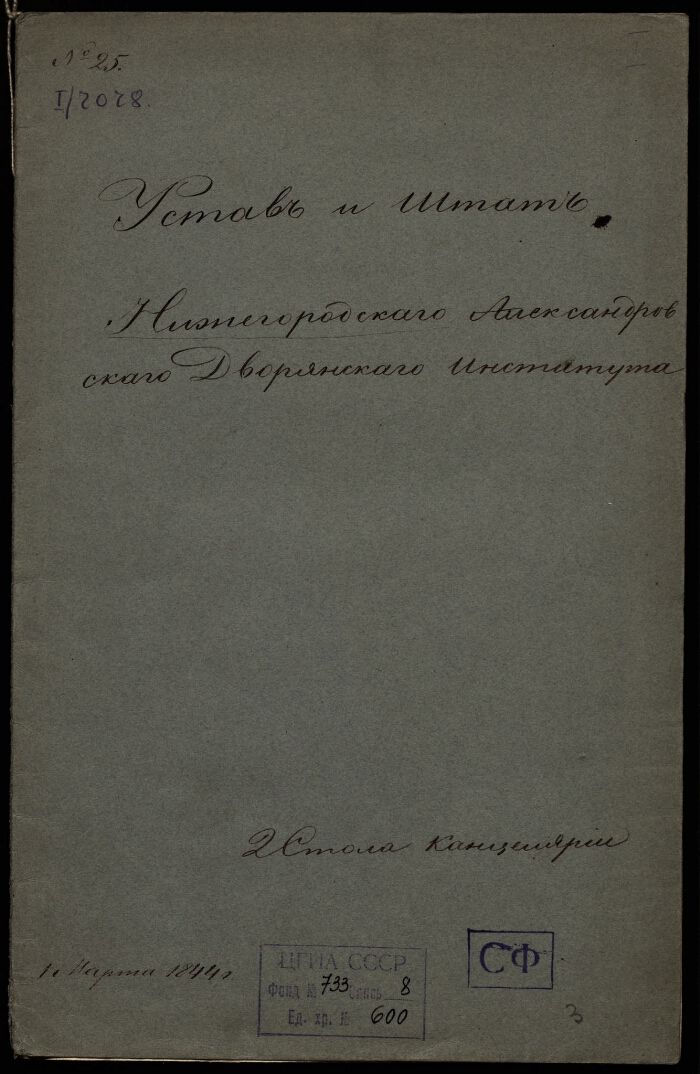 № 25.
I/2028.
Уставъ и Штатъ
Нижегородскаго Александров
скаго Дворянскаго Института
2 Стола Канцеляріи
1 Марта 1844 г.
ЦГИА СССР
Фонд № 733 Связь 8
Ед. хр. № 600
СФ
3